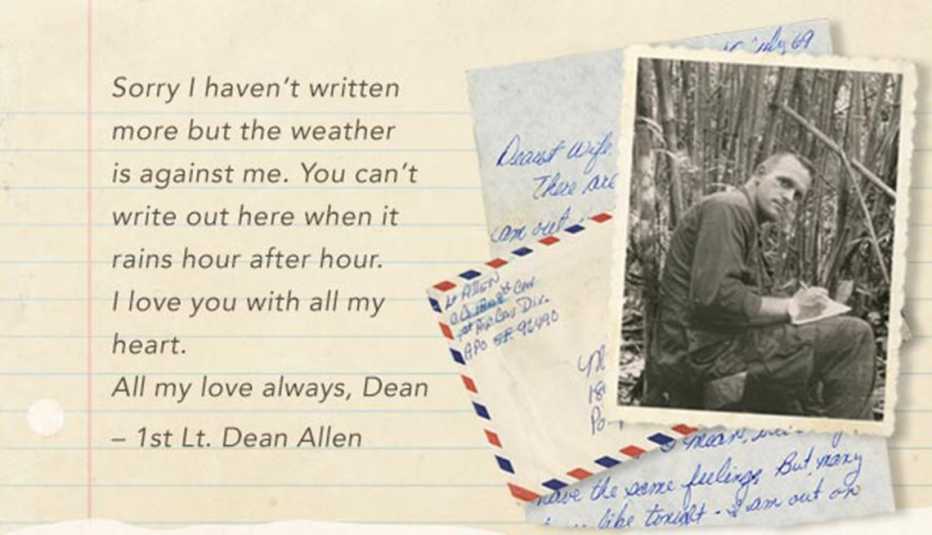 Sorry I haven't written
more but the weather
is against me. You can't
write out here when it
rains hour after hour.
I love you with all my
heart.
All my love always, Dean
– 1st Lt. Dean Allen
July 69
Dearest Wife,
There are
am out
Lt Allen
Air Cav Div.
APO SF 96490
I mean,
have the same feelings. But many
like tonight - I am out on